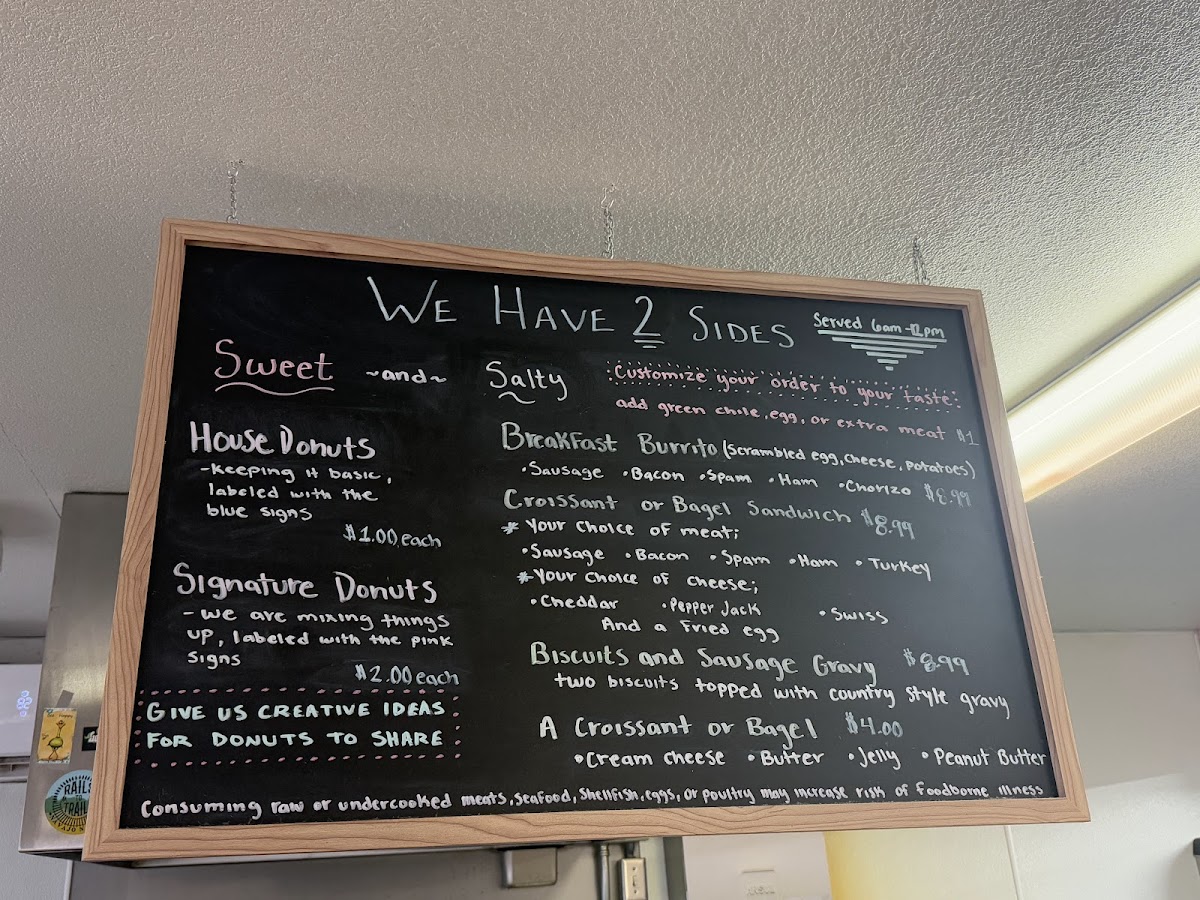 WE HAVE 2 SIDES
Served 6am-12pm
Sweet ~and~ Salty
House Donuts
-Keeping it basic,
labeled with the
blue signs
$1.00 each
Signature Donuts
-We are mixing things
up, labeled with the pink
signs
$2.00 each
GIVE US CREATIVE IDEAS
FOR DONUTS TO SHARE
Customize your order to your taste:
add green chile, egg, or extra meat $1
Breakfast Burrito (scrambled egg, cheese, potatoes)
•Sausage •Bacon •Spam •Ham •Chorizo $8.99
Croissant or Bagel Sandwich $8.99
* Your choice of meat;
•Sausage •Bacon •Spam •Ham •Turkey
*Your choice of cheese;
•Cheddar •Pepper Jack •Swiss
And a fried egg
Biscuits and Sausage Gravy $8.99
two biscuits topped with country style gravy
A Croissant or Bagel $4.00
•Cream cheese •Butter •Jelly •Peanut Butter
Consuming raw or undercooked meats, seafood, shellfish, eggs, or poultry may increase risk of foodborne illness
RAILS
TO
TRAILS